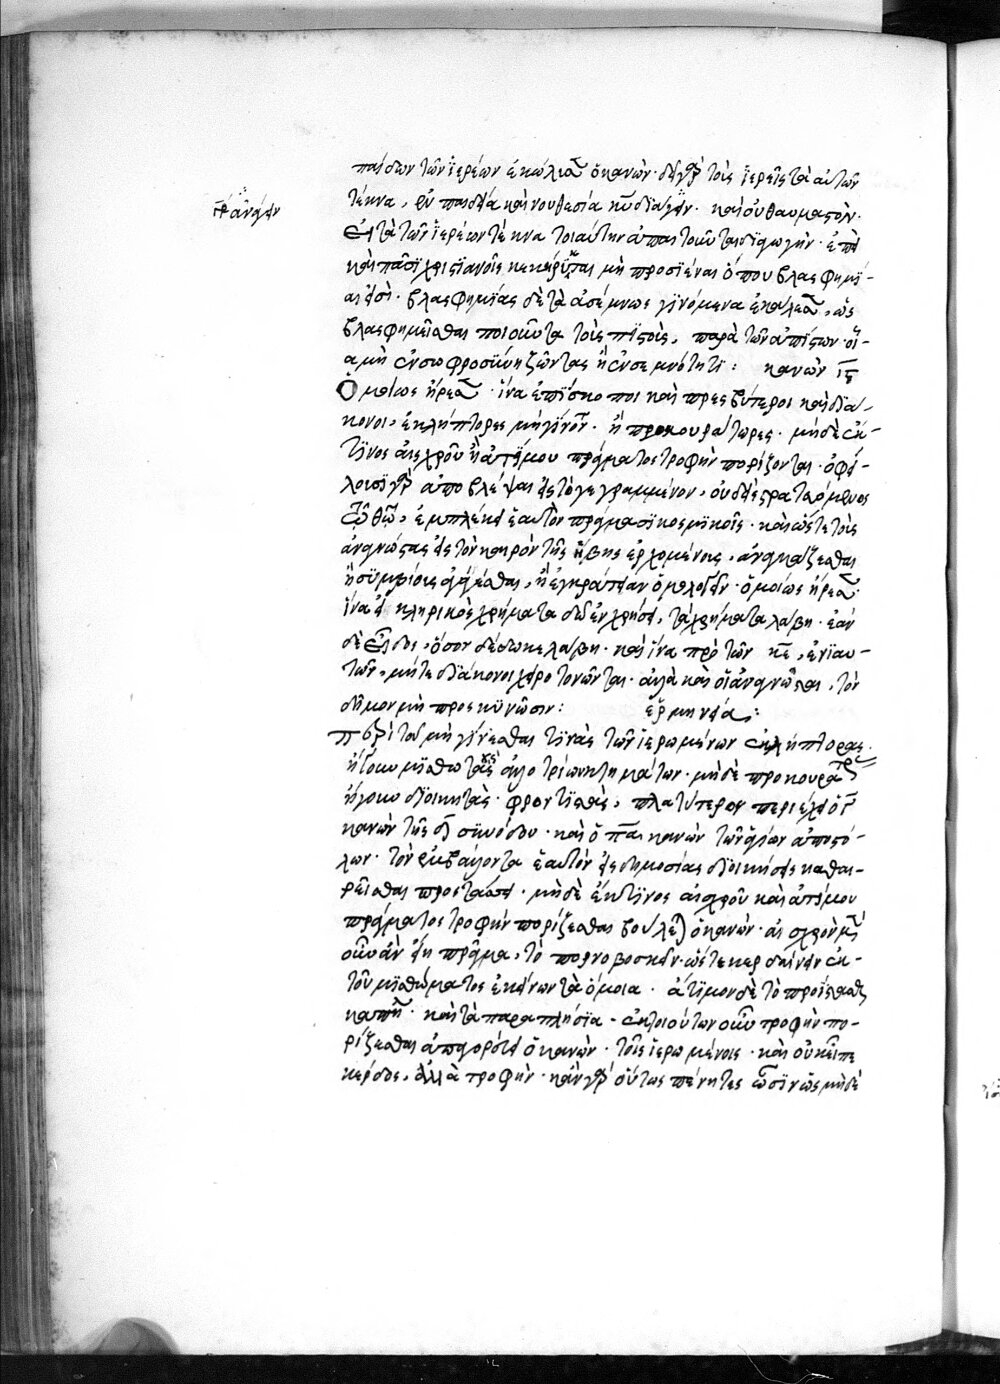 παίδων τῶν ἱερέων ἐκώλυσεν ὁ κανών· δεῖ γὰρ τοὺς ἱερεῖς τὰ αὐτῶν
τέκνα, ἐν παιδεία καὶ νουθεσία κυ διάγειν. καὶ οὐ θαυμαστὸν.
εἰ τὰ τῶν ἱερέων τέκνα τοιαύτην ἀπαιτοῦνται διαγωγήν· ἐπεὶ
καὶ πᾶσι χριστιανοῖς κεκήρυκται μὴ προσιέναι ὅπου βλασφημί-
αι εἰσὶ· βλασφημίας δὲ τὰ ἀσέμνως γινόμενα ἐκάλεσεν, ὡς
βλασφημεῖσθαι ποιοῦντα τοὺς πιστοὺς, παρὰ τῶν ἀπίστων οἷ-
α μὴ ἐν σωφροσύνη ζῶντας ἢ ἐν σεμνότητι: κανὼν ιϛ
Ὁμοίως ἤρεσεν· ἵνα ἐπίσκοποι καὶ πρεσβύτεροι καὶ διά-
κονοι, ἐκλήπτορες μὴ γίνονται· ἢ προκουράτωρες· μὴδὲ ἔκ
τινος αἰσχροῦ ἢ ἀτίμου πράγματος τροφὴν πορίζονται· ὀφεί-
λουσι γὰρ ἀποβλέψαι εἰς τὸ γεγραμμένον, οὐδεὶς στρατευόμενος
τῷ θῶ, ἐμπλέκει ἑαυτὸν πράγμασι κοσμικοῖς· καὶ ὥστε τοὺς
ἀναγνώστας εἰς τὸν καιρὸν τῆς ἥβης ἐρχομένους, ἀναγκάζεσθαι
ἢ συμβίους ἀγαγέσθαι, ἢ ἐγκράτειαν ὁμολογεῖν· ὁμοίως ἤρεσεν
ἵνα εἰ κληρικὸς χρήματα δανείω χρήσει, τὰ χρήματα λάβη· ἐὰν
δὲ εἶδος, ὅσον δέδωκε λάβη· καὶ ἵνα πρὸ τῶν κε, ἐνιαυ-
τῶν, μήτε διάκονοι χειροτονῶνται· ἀλλὰ καὶ οἱ ἀναγνῶσται, τὸν
δῆμον μὴ προσκυνῶσιν: ἑρμηνεία:
Περὶ τοῦ μὴ γίνεσθαι τινὰς τῶν ἱερωμένων ἐκλήπτορας.
ἤτοι μισθωτὰς ἀλλοτρίων κτημάτων· μὴδὲ προκουράτορας
ἤγουν διοικητὰς· φροντιστὰς, πλατύτερον περιέχει ὁ γ
κανὼν τῆς δ συνόδου· καὶ ὁ πα κανὼν τῶν ἁγίων ἀποστό-
λων· τὸν ἐμβάλλοντα ἑαυτὸν εἰς δημοσίας διοικήσεις καθαι-
ρεῖσθαι προστάσσει· μὴδὲ ἔκ τινος αἰσχροῦ καὶ ἀτίμου
πράγματος τροφὴν πορίζεσθαι βούλεται ὁ κανὼν· αἰσχρὸν μὲν
οὖν ἂν εἴη πρᾶγμα, τὸ πορνοβοσκεῖν· ὥστε κερδαίνειν ἐκ
τοῦ μισθώματος ἐκείνων τὰ ὅμοια· ἄτιμον δὲ τὸ προΐστασθαι
καπηλ· καὶ τὰ παραπλήσια· ἐκ τοιούτων οὖν τροφὴν πο-
ρίζεσθαι ἀπαγορεύει ὁ κανὼν· τοῖς ἱερωμένοις· καὶ οὐκ εἶπε
κέρδος, ἀλλὰ τροφὴν· κἂν γὰρ οὕτως πένητες ὦσιν ὡς μηδὲ